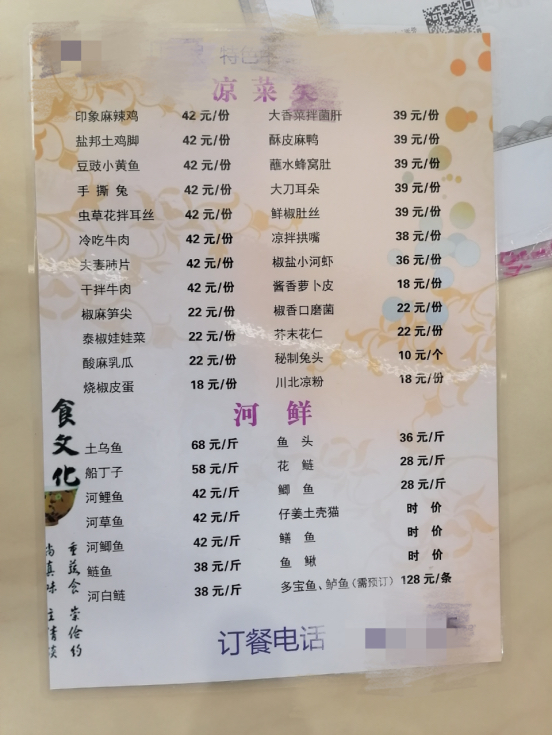 特色
凉菜类
印象麻辣鸡 42 元/份 大香菜拌菌肝 39 元/份
盐邦土鸡脚 42 元/份 酥皮麻鸭 39 元/份
豆豉小黄鱼 42 元/份 蘸水蜂窝肚 39 元/份
手 撕 兔 42 元/份 大刀耳朵 39 元/份
虫草花拌耳丝 42 元/份 鲜椒肚丝 39 元/份
冷吃牛肉 42 元/份 凉拌拱嘴 38 元/份
夫妻肺片 42 元/份 椒盐小河虾 36 元/份
干拌牛肉 42 元/份 酱香萝卜皮 18 元/份
椒麻笋尖 22 元/份 椒香口磨菌 22 元/份
泰椒娃娃菜 22 元/份 芥末花仁 22 元/份
酸麻乳瓜 22 元/份 秘制兔头 10 元/个
烧椒皮蛋 18 元/份 川北凉粉 18 元/份
河 鲜
土乌鱼 68 元/斤 鱼 头 36 元/斤
船丁子 58 元/斤 花 鲢 28 元/斤
河鲤鱼 42 元/斤 鲫 鱼 28 元/斤
河草鱼 42 元/斤 仔姜土壳猫 时 价
河鲫鱼 42 元/斤 鳝 鱼 时 价
鲢鱼 38 元/斤 鱼 鳅 时 价
河白鲢 38 元/斤 多宝鱼、鲈鱼(需预订) 128 元/条
食文化
重蔬食 崇俭约
尚真味 主清淡
订餐电话